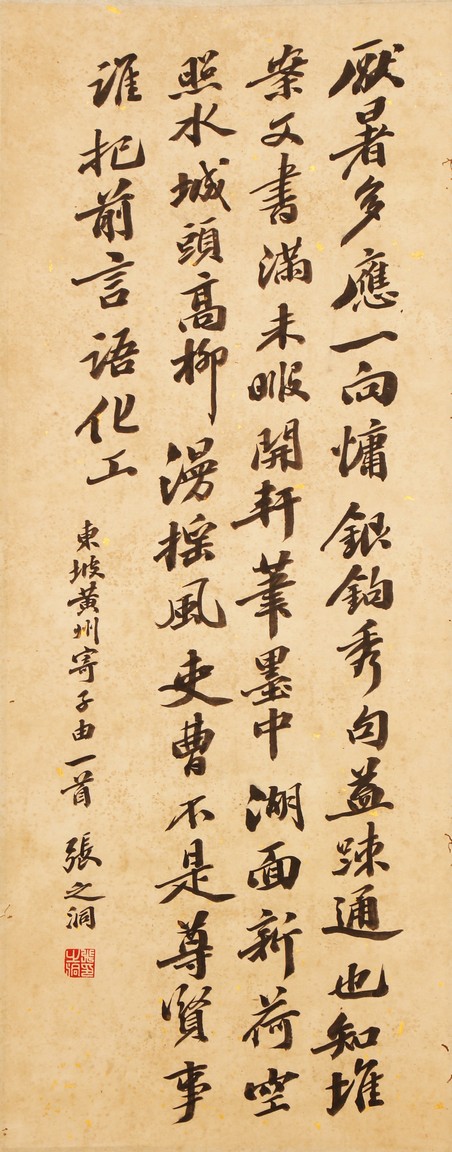 厭暑多應一向慵銀鉤秀句益疎通也知堆
案文書滿未暇開軒筆墨中湖面新荷空
照水城頭高柳漫搖風吏曹不是尊賢事
誰把前言語化工
東坡黃州寄子由一首 張之洞
張之洞印